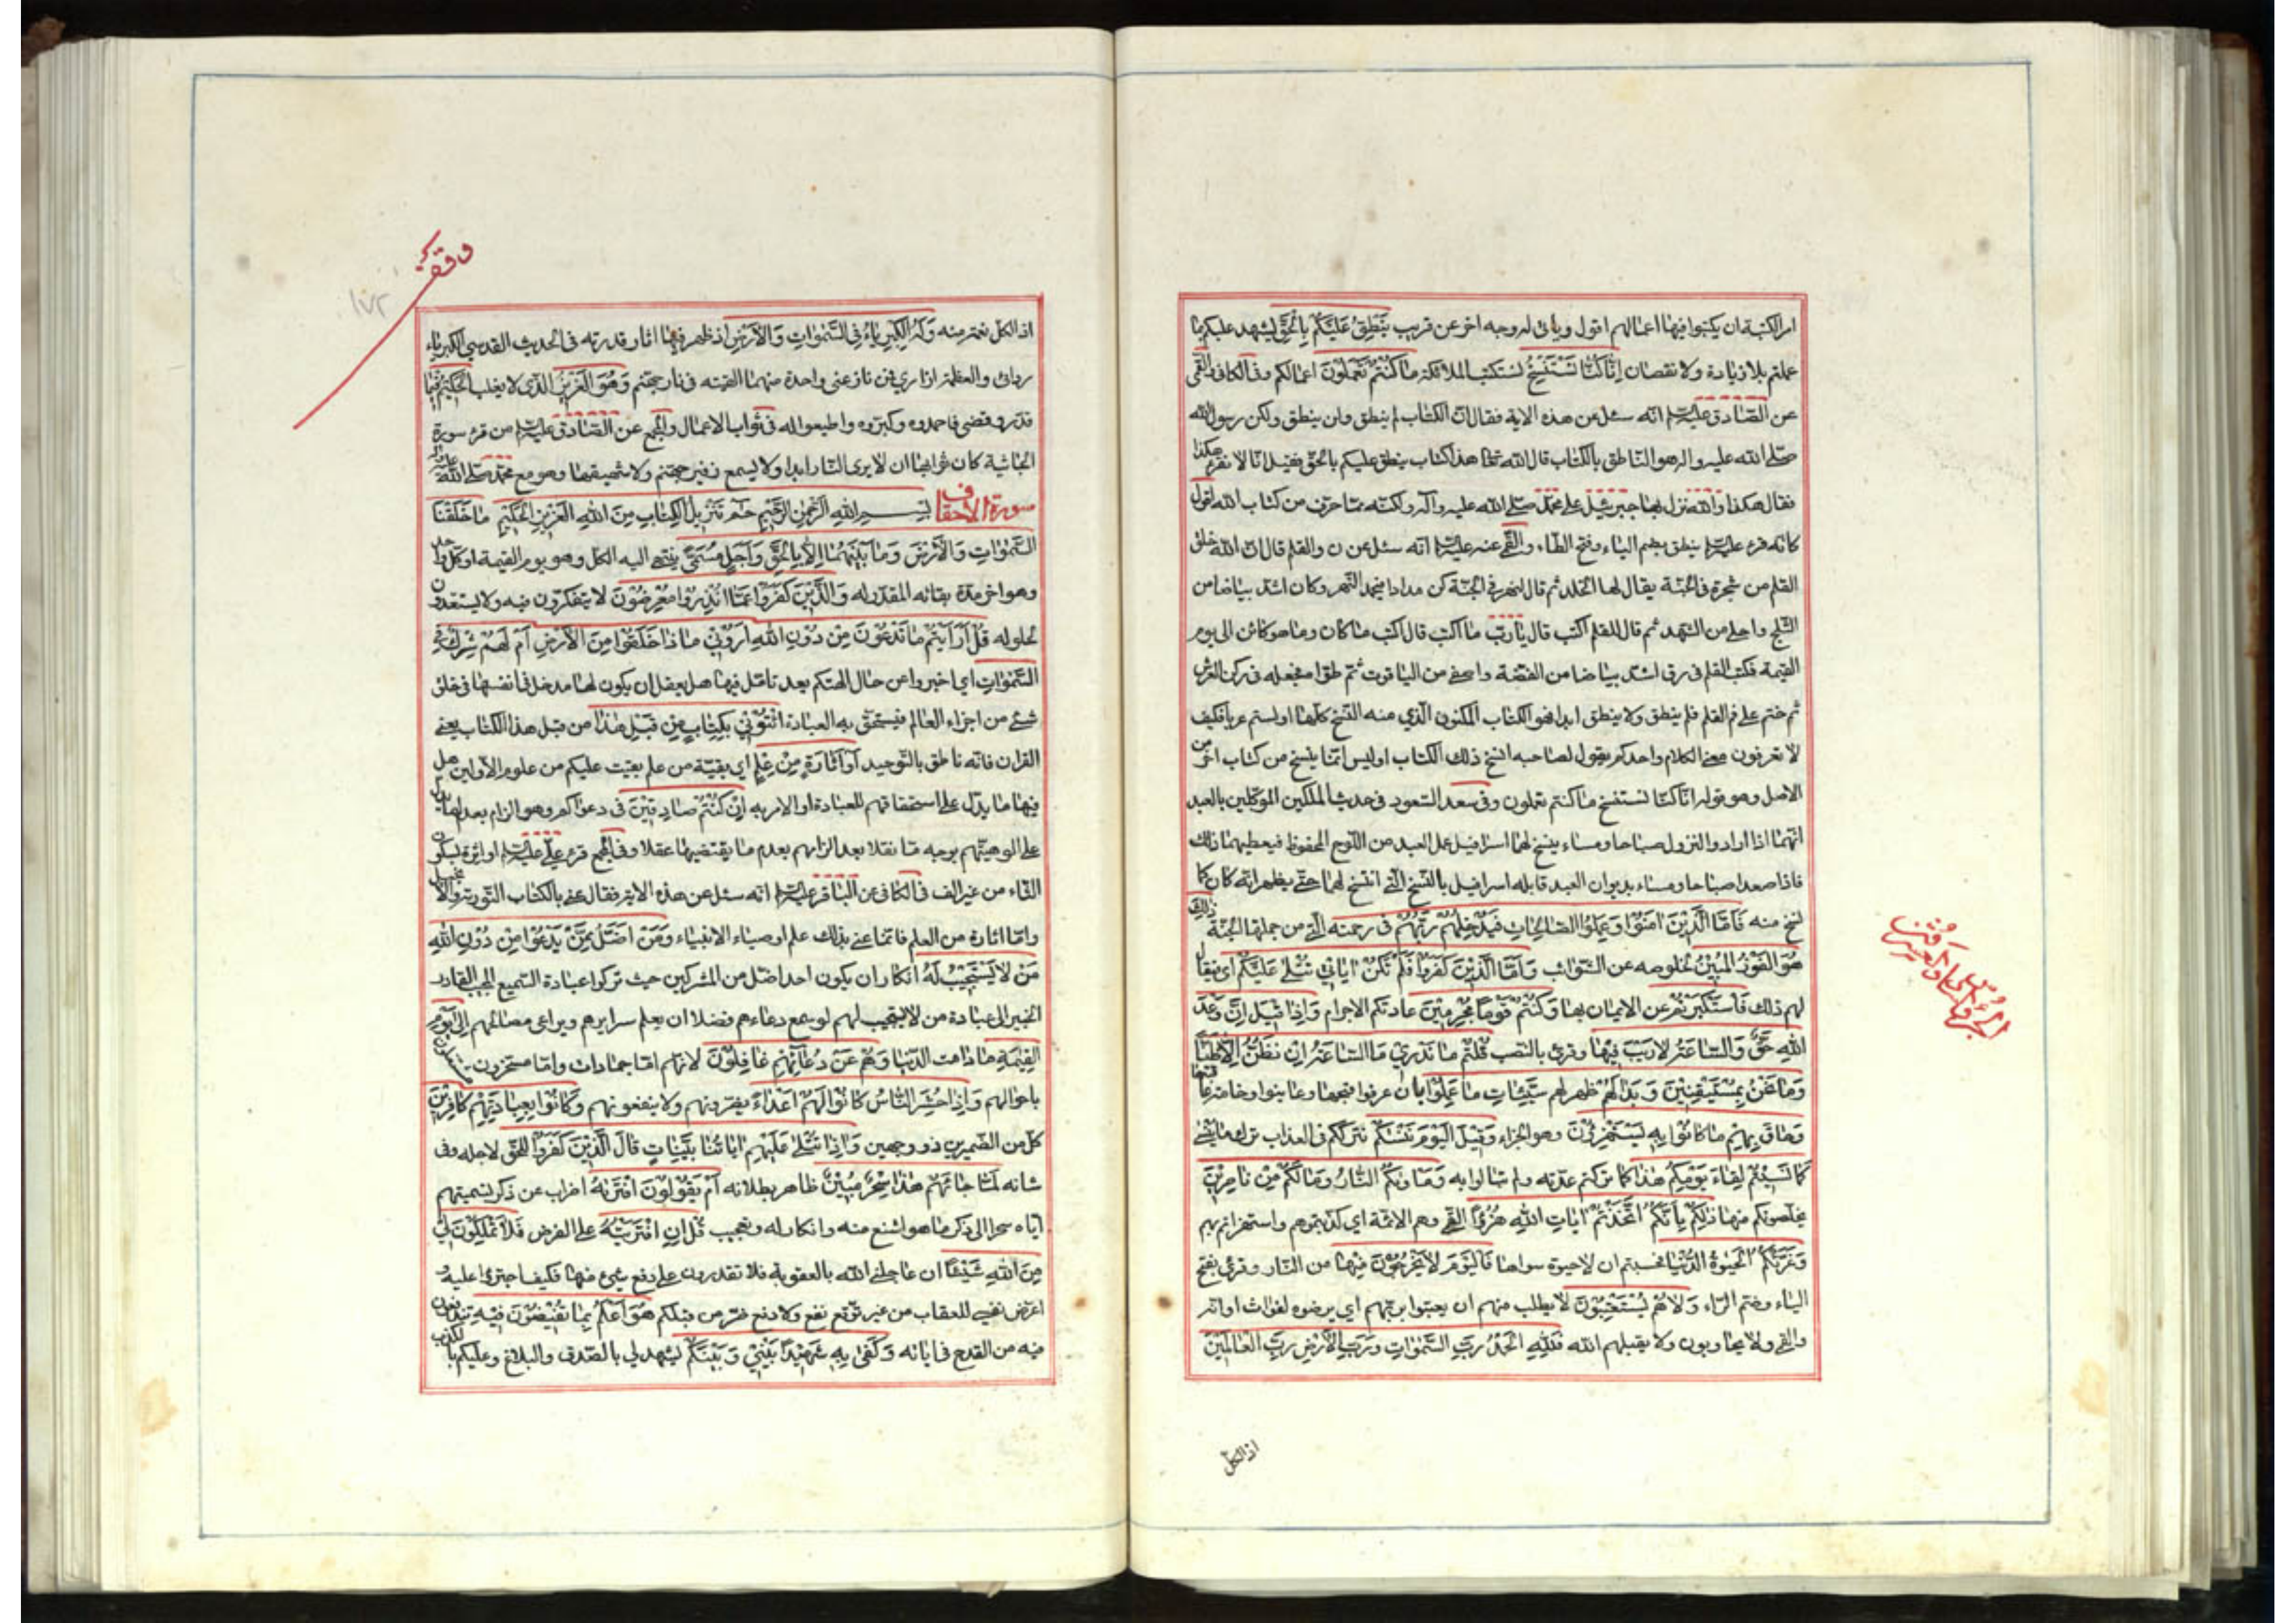 امر الكتبة ان يكتبوا فيها اعمالهم اقول ويأتى له وجه اخر عن قريب يَنْطِقُ عَلَيْكُمْ بِالْحَقِّ يشهد عليكم بما
عملتم بلا زيادة ولا نقصان اِنَّا كُنَّا نَسْتَنْسِخُ نستكتب الملائكة مَا كُنْتُمْ تَعْمَلُونَ اعمالكم وفى الكافى والقمى
عن الصّادق عليه السلم انه سئل عن هذه الاية فقال انّ الكتاب لم ينطق ولن ينطق ولكن رسول الله
صلّى الله عليه واله هو النّاطق بالكتاب قال الله تعالى هذا كتابنا ينطق عليكم بالحقّ فقيل انّا لا نقرءها هكذا
فقال هكذا والله نزل بها جبرئيل على محمّد صلّى الله عليه وآله ولكنّه ممّا حرّف من كتاب الله اقول
كانّه قرء عليه السلم ينطق بضم الياء وفتح الطّاء والقمّى عنه عليه السلم انه سئل عن ن والقلم قال انّ الله خلق
القلم من شجرة فى الجنّة يقال لها الخلد ثم قال لنهر فى الجنّة كن مدادا فجمد النّهر وكان اشدّ بياضا من
الثّلج واحلى من الشّهد ثم قال للقلم اكتب قال يا ربّ ما اكتب قال اكتب ما كان وما هو كائن الى يوم
القيمة فكتب القلم فى رق اشدّ بياضا من الفضّة واصفى من الياقوت ثمّ طواه فجعله فى ركن العرش
ثم ختم على فم القلم فلم ينطق ولا ينطق ابدا فهو الكتاب المكنون الّذي منه النّسخ كلّها اولستم عربا فكيف
لا تعرفون معنى الكلام واحدكم يقول لصاحبه انسخ ذلك الكتاب اوليس انّما ينسخ من كتاب اخر من
الاصل وهو قوله انّا كنّا نستنسخ ما كنتم تعملون وفى سعد السّعود فى حديث الملكين الموكّلين بالعبد
انّهما اذا ارادوا النزول صباحا ومساء ينسخ لهما اسرافيل عمل العبد من اللّوح المحفوظ فيعطيهما ذلك
فاذا صعدا صباحا ومساء بديوان العبد قابله اسرافيل بالنّسخ الّتى انتسخ لهما حتّى يظهر انّه كان كما
نسخ منه فَاَمَّا الَّذِينَ امَنُوا وَعَمِلُوا الصَّالِحَاتِ فَيُدْخِلُهُمْ رَبُّهُمْ فى رحمته الّتى من جملتها الجنّة ذلِكَ
هُوَ الْفَوْزُ الْمُبِينُ لخلوصه عن الشّوائب وَاَمَّا الَّذِينَ كَفَرُوا اَفَلَمْ تَكُنْ ايَاتِي تُتْلى عَلَيْكُمْ اى فيقال
لهم ذلك فَاسْتَكْبَرْتُمْ عن الايمان بها وَكُنْتُمْ قَوْمًا مُجْرِمِينَ عادتكم الاجرام وَاِذَا قِيلَ اِنَّ وَعْدَ
اللهِ حَقٌّ وَالسَّاعَةُ لَا رَيْبَ فِيهَا وقرئ بالنّصب قُلْتُمْ مَا نَدْرِي مَا السَّاعَةُ اِنْ نَظُنُّ اِلَّا ظَنًّا
وَمَا نَحْنُ بِمُسْتَيْقِنِينَ وَبَدَا لَهُمْ ظهر لهم سَيِّئَاتُ مَا عَمِلُوا بان عرفوا قبحها وعاينوا وخامة عاقبتها
وَحَاقَ بِهِمْ مَا كَانُوا بِهِ يَسْتَهْزِئُونَ وهو الجزاء وَقِيلَ الْيَوْمَ نَنْسَاكُمْ نترككم فى العذاب ترك ما ينسى
كَمَا نَسِيتُمْ لِقَاءَ يَوْمِكُمْ هذَا كما تركتم عدّته ولم تبالوا به وَمَأْوَاكُمُ النَّارُ وَمَا لَكُمْ مِنْ نَاصِرِينَ
يخلّصونكم منها ذلِكُمْ بِاَنَّكُمُ اتَّخَذْتُمْ ايَاتِ اللهِ هُزُوًا القمّى وهم الائمّة اي كذّبتموهم واستهزأتم بهم
وَغَرَّتْكُمُ الْحَيوةُ الدُّنْيَا فحسبتم ان لا حيوة سواها فَالْيَوْمَ لَا يُخْرَجُونَ مِنْهَا من النّار وقرئ بفتح
الياء وضم الرّاء وَلَا هُمْ يُسْتَعْتَبُونَ لا يطلب منهم ان يعتبوا ربّهم اي يرضوه لفوات اوانه
والقمى ولا يجاوبون ولا يقبلهم الله فَلِلّهِ الْحَمْدُ رَبِّ السَّموَاتِ وَرَبِّ الْاَرْضِ رَبِّ الْعَالَمِينَ
اذ الكل
وقف
١٧٢
اذ الكل نعمة منه وَلَهُ الْكِبْرِيَاءُ فِي السَّموَاتِ وَالْاَرْضِ اذ ظهر فيها اثار قدرته فى الحديث القدسي الكبرياء
ردائى والعظمة ازاري فمن نازعنى واحدة منهما القيته فى نار جهنّم وَهُوَ الْعَزِيزُ الّذى لا يغلب الْحَكِيمُ فيما
قدّر وقضى فاحمدوه وكبّروه واطيعوا له فى ثواب الاعمال والمجمع عن الصّادق عليه السلم من قرء سورة
الجاثية كان ثوابها ان لا يرى النّار ابدا ولا يسمع زفير جهنّم ولا شهيقها وهو مع محمّد صلّى الله عليه واله
سورة الاحقاف بِسْمِ اللهِ الرَّحْمنِ الرَّحِيمِ حم تَنْزِيلُ الْكِتَابِ مِنَ اللهِ الْعَزِيزِ الْحَكِيمِ مَا خَلَقْنَا
السَّموَاتِ وَالْاَرْضَ وَمَا بَيْنَهُمَا اِلَّا بِالْحَقِّ وَاَجَلٍ مُسَمًّى ينتهى اليه الكل وهو يوم القيمة او كل واحد
وهو اخر مدّة بقائه المقدّر له وَالَّذِينَ كَفَرُوا عَمَّا اُنْذِرُوا مُعْرِضُونَ لا يتفكرّون فيه ولا يستعدّون
لحلوله قُلْ اَرَاَيْتُمْ مَا تَدْعُونَ مِنْ دُونِ اللهِ اَرُونِي مَاذَا خَلَقُوا مِنَ الْاَرْضِ اَمْ لَهُمْ شِرْكٌ فِي
السَّموَاتِ اي اخبروا عن حال الهتكم بعد تامّل فيها هل يعقل ان يكون لها مدخل فى انفسها فى خلق
شئ من اجزاء العالم فيستحقّ به العبادة ائْتُونِي بِكِتَابٍ مِنْ قَبْلِ هذَا من قبل هذا الكتاب يعنى
القران فانّه ناطق بالتّوحيد اَوْ اَثَارَةٍ مِنْ عِلْمٍ اي بقيّة من علم بقيت عليكم من علوم الاوّلين هل
فيها ما يدلّ على استحقاقهم للعبادة او الامر به اِنْ كُنْتُمْ صَادِقِينَ فى دعواكم وهو الزام بعدم ما يدل
على الوهيّتهم بوجه ما نقلا بعد الزامهم بعدم ما يقتضيها عقلا وفى المجمع قرء علىّ عليه السلم او اثرة بسكون
الثّاء من غير الف فى الكافى عن الباقر عليه السلم انه سئل عن هذه الاية فقال عنى بالكتاب التّورية والانجيل
وامّا اثارة من العلم فانّما عنى بذلك علم اوصياء الانبياء وَمَنْ اَضَلُّ مِمَّنْ يَدْعُوا مِنْ دُونِ اللهِ
مَنْ لَا يَسْتَجِيبُ لَهُ انكار ان يكون احد اضلّ من المشركين حيث تركوا عبادة السّميع المجيب القادر
الخبير الى عبادة من لا يستجيب لهم لو سمع دعاءهم فضلا ان يعلم سرايرهم ويراعى مصالحهم اِلى يَوْمِ
الْقِيمَةِ ما دامت الدّنيا وَهُمْ عَنْ دُعَائِهِمْ غَافِلُونَ لانّهم امّا جمادات وامّا مسخّرون مشتغلون
باحوالهم وَاِذَا حُشِرَ النَّاسُ كَانُوا لَهُمْ اَعْدَاءً يضرّونهم ولا ينفعونهم وَكَانُوا بِعِبَادَتِهِمْ كَافِرِينَ
كلّ من الضّميرين ذو وجهين وَاِذَا تُتْلى عَلَيْهِمْ ايَاتُنَا بَيِّنَاتٍ قَالَ الَّذِينَ كَفَرُوا لِلْحَقِّ لاجله وفى
شانه لَمَّا جَاءَهُمْ هذَا سِحْرٌ مُبِينٌ ظاهر بطلانه اَمْ يَقُولُونَ افْتَرَاهُ اضراب عن ذكر تسميتهم
ايّاه سحرا الى ذكر ما هو اشنع منه وانكار له وتعجيب قُلْ اِنِ افْتَرَيْتُهُ على الفرض فَلَا تَمْلِكُونَ لِي
مِنَ اللهِ شَيْئًا ان عاجلنى الله بالعقوبة فلا تقدرون على دفع شئ منها فكيف اجترئ عليه و
اعرّض نفسى للعقاب من غير توقّع نفع ولا دفع ضرّ من قبلكم هُوَ اَعْلَمُ بِمَا تُفِيضُونَ فِيهِ تندفعون
فيه من القدح فى اياته وَكَفى بِهِ شَهِيدًا بَيْنِي وَبَيْنَكُمْ يشهد لى بالصّدق والبلاغ وعليكم بالكذب